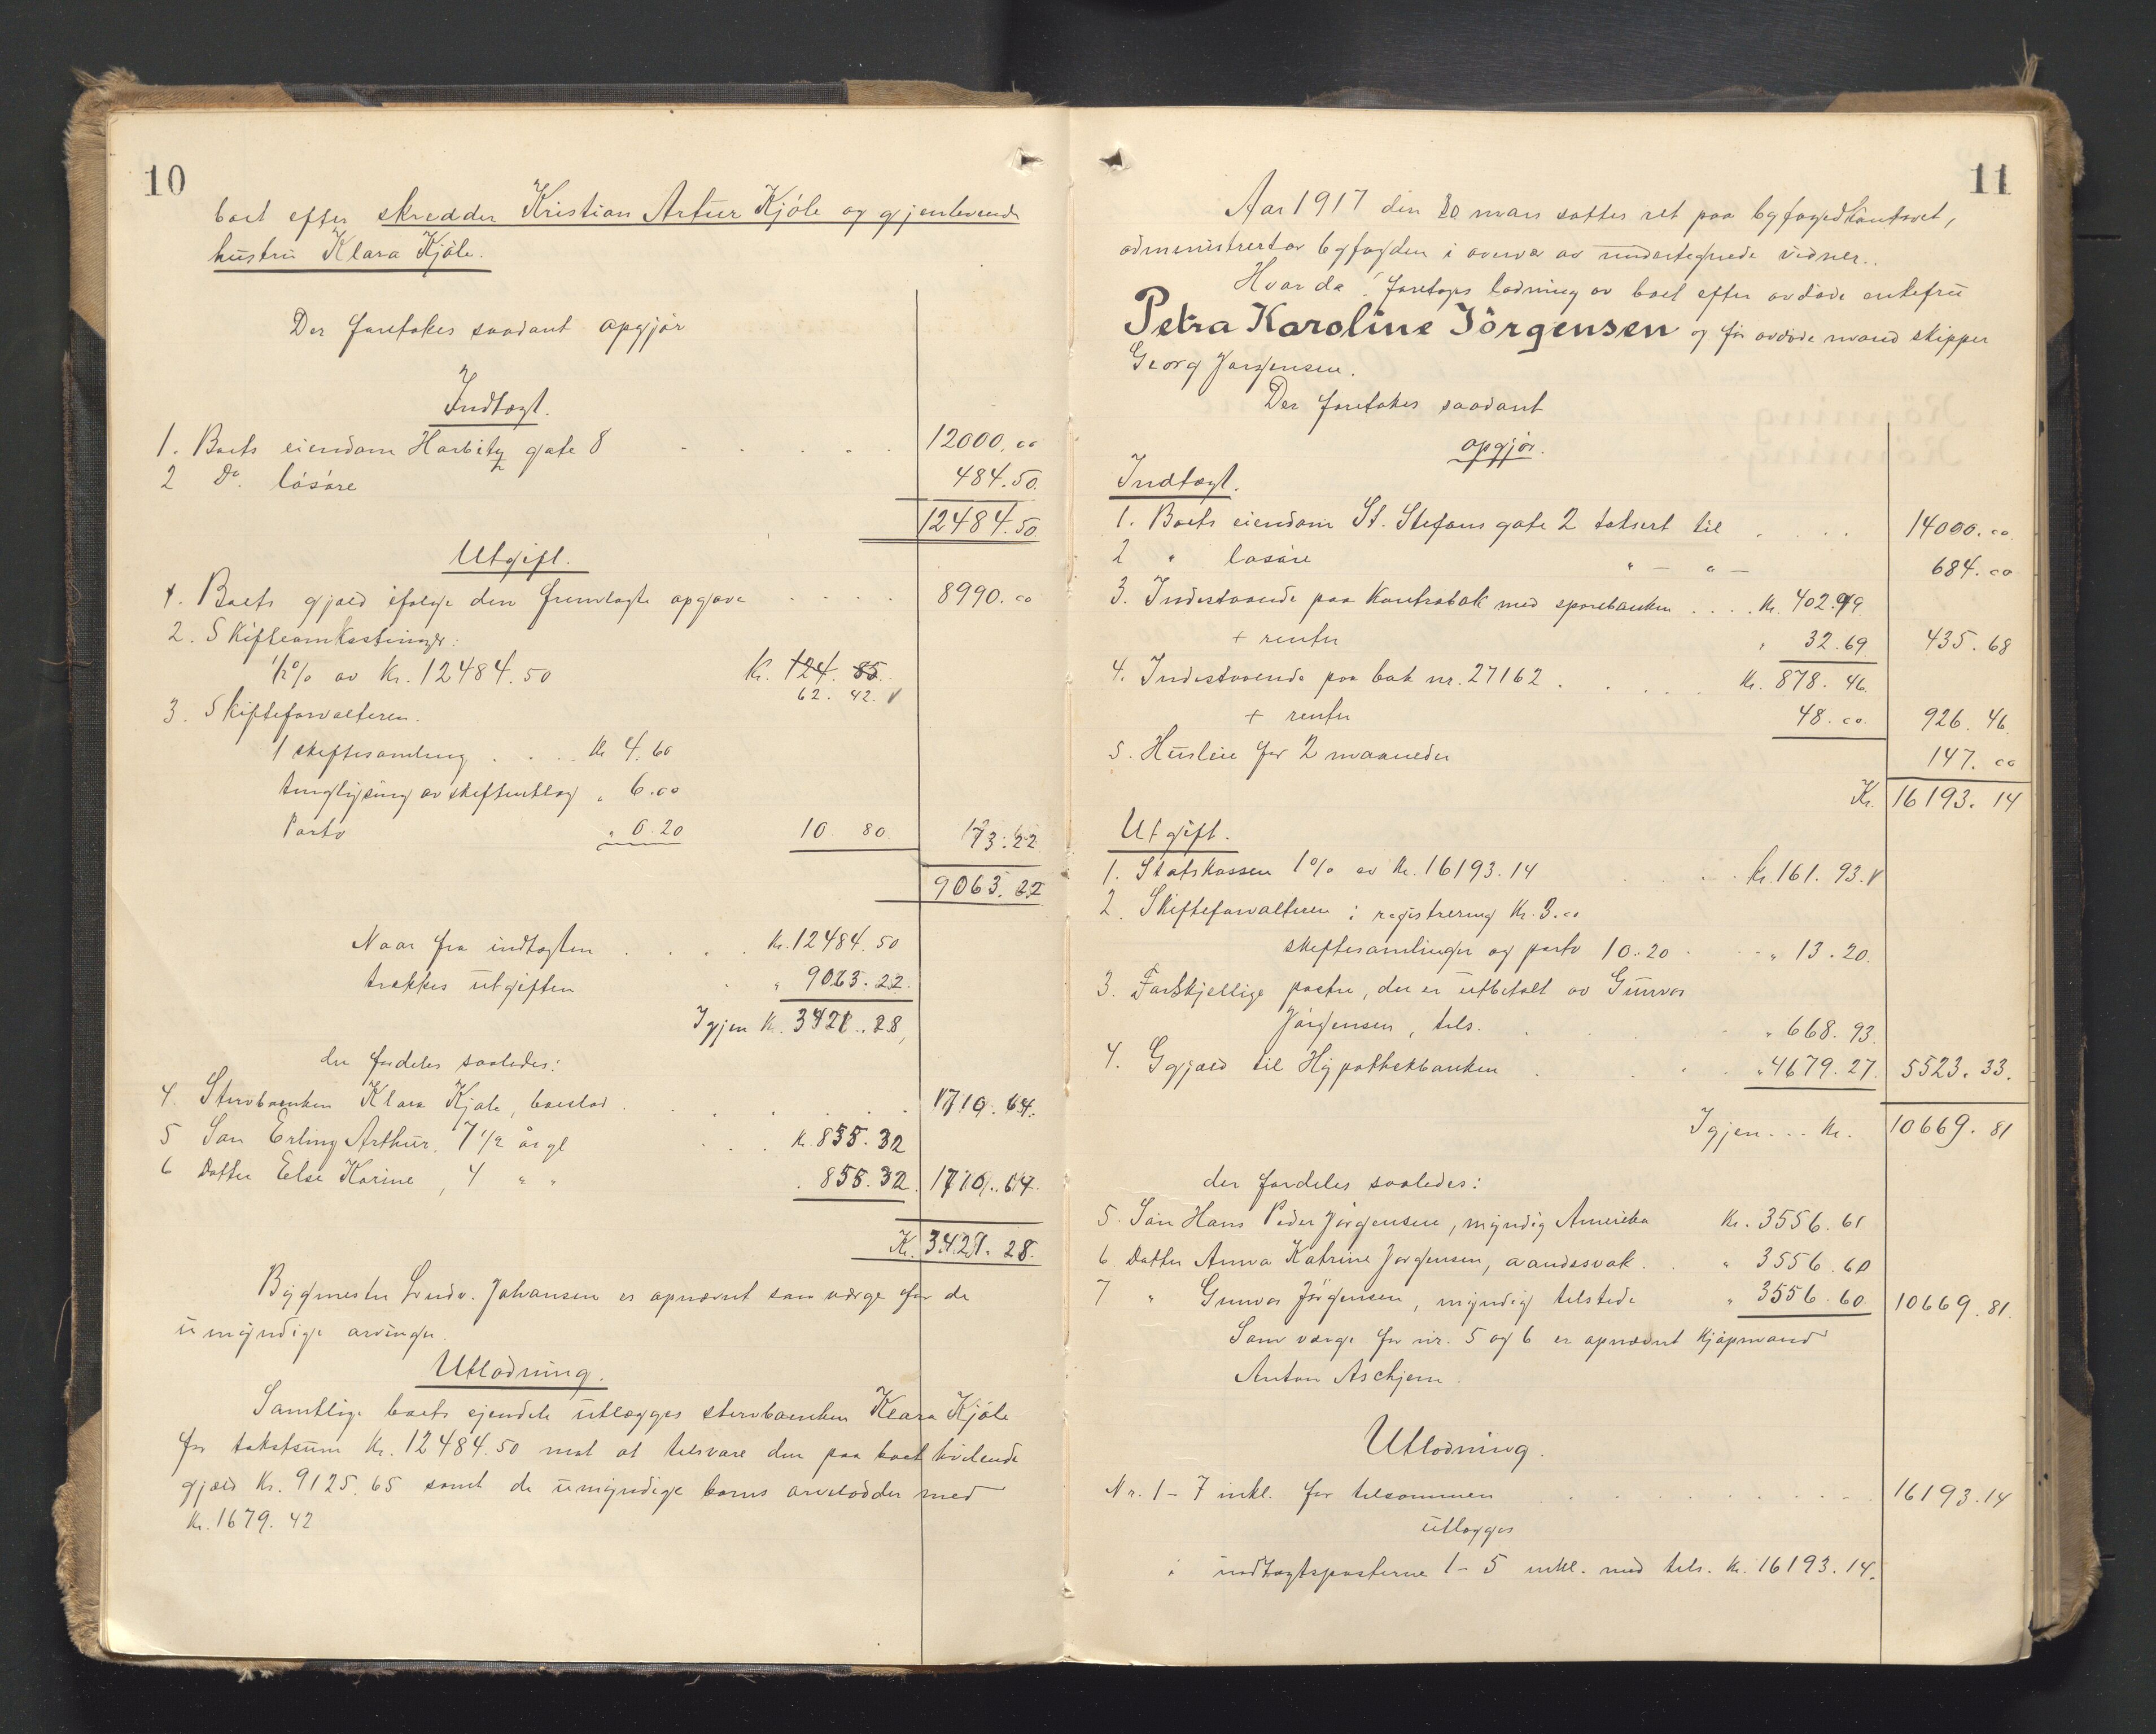 10
boet efter skredder Kristian Artur Kjöle og gjenlevende
hustru Klara Kjöle.
Der foretokes saadant opgjör
Indtægt.
1. Boets eiendom Harbitz gate 8 12000.00
2 Do. lösöre 484.50.
12484.50
Utgift.
1. Boets gjæld ifølge den fremlagte opgave 8990.00
2. Skifteomkostninger:
1/2% av Kr. 12484.50 Kr. 124. 85.
62. 42. V
3. Skifteforvalteren.
1 skiftesamling Kr 4.60
tinglysning av skifteutlæg " 6.00
Porto " 0.20 10. 80. 73.22
9063.22
Naar fra indtægten Kr. 12484.50
trækkes utgiften " 9063.22.
Igjen Kr. 3421.28,
der fordeles saaledes:
4. Stervboenken Klara Kjöle, boeslod 1710.64.
5 Sön Erling Arthur, 7 1/2 år gl Kr. 855.32
6 Datter Else Karine, 4 " " 855.32 1710.64.
Kr. 3421.28.
Bygmester Ludv. Johansen er opnævnt som værge for de
umyndige arvinger.
Utlodning.
Samtlige boets ejendele utlægges stervboenken Klara Kjöle
for takstsum Kr. 12484.50 mot at tilsvare den paa boet hvilende
gjæld Kr. 9125.65 samt de umyndige barns arvelodder med
Kr. 1679.42
11
Aar 1917 den 20 mars sattes ret paa byfogedkontoret,
administrert av byfogden i overvær av undertegnede vidner..
Hvor da: foretoges lodning av boet efter avdöde enkefru
Petra Karoline Jörgensen og för avdöde mand skipper
Georg Jørgensen.
Der foretokes saadant
opgjör.
Indtægt.
1. Boets eiendom St. Stefans gate 2 taksert til 14000.00.
2 " lösöre " — " — 684.00
3. Indestaaende paa Kontrabok med sparebanken Kr. 402.99
+ renter " 32.69 435.68
4. Indestaaende paa bok nr. 27162 Kr. 878.46.
+ renter 48.00. 926.46
5. Husleie for 2 maaneder 147.00
Kr. 16193.14
Utgift.
1. Statskassen 1% av Kr. 16193.14 Kr. 161.93. V
2. Skifteforvalteren: registrering Kr. 3.00
skiftesamlinger og porto 10.20 " 13.20.
3. Forskjellige poster, der er utbetalt av Gunvor
Jörgensen, tils. " 668.93.
4. Gjæld til Hypothekbanken " 4679.27. 5523.33.
Igjen... Kr. 10669.81
der fordeles saaledes:
5. Sön Hans Peder Jörgensen, myndig Amerika Kr. 3556.61
6 Datter Anna Katrine Jörgensen, aandssvak " 3556.60
7 " Gunvor Jörgensen, myndig tilstede " 3556.60 10669.81.
Som værge for nr. 5 og 6 er opnævnt Kjöpmand
Anton Aschjem.
Utlodning.
Nr. 1-7 inkl. for tilsammen 16193.14
utlægges
i indtægtsposterne 1-5 inkl. med tils. Kr. 16193.14.